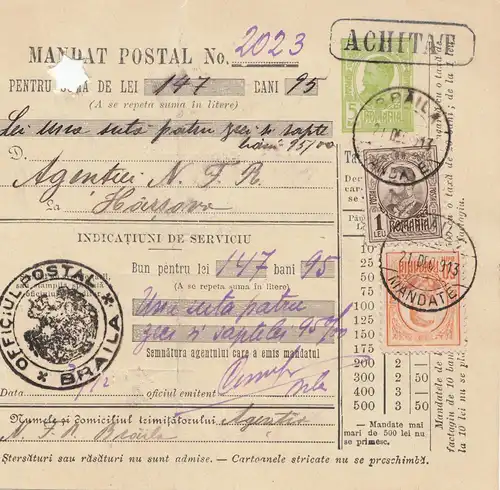 MANDAT POSTAL No. 2023
ACHITAT
PENTRU SUMA DE LEI 147 BANI 95
(A se repeta suma în litere)
Lei una suta patru zeci si sapte
bani 95/00
D.
Agentiei N. F. R.
La
Hârsova
INDICAȚIUNI DE SERVICIU
Bun pentru lei 147 bani 95
(A se repeta suma în litere)
Una suta patru
zeci si sapte 95/00
Semnătura agentului care a emis mandatul
Data
oficiul emitent
Numele și domiciliul trimițătorului Agentia
N. F. R. Braila
Ștersături sau răsături nu sunt admise. – Cartoanele stricate nu se preschimbă.
OFFICIUL POSTAL
BRAILA
5
ROMANIA
BRAILA
MANDATE
1
LEU
ROMANIA
21 DEC 913
MANDATE
100
125
150
175
200 2
300 2 50
400 3
500 3 50
— Mandate mai
mari de 500 lei nu
se primesc.
Mandatele de
factogiu de 10 bani
la 10 lei nu